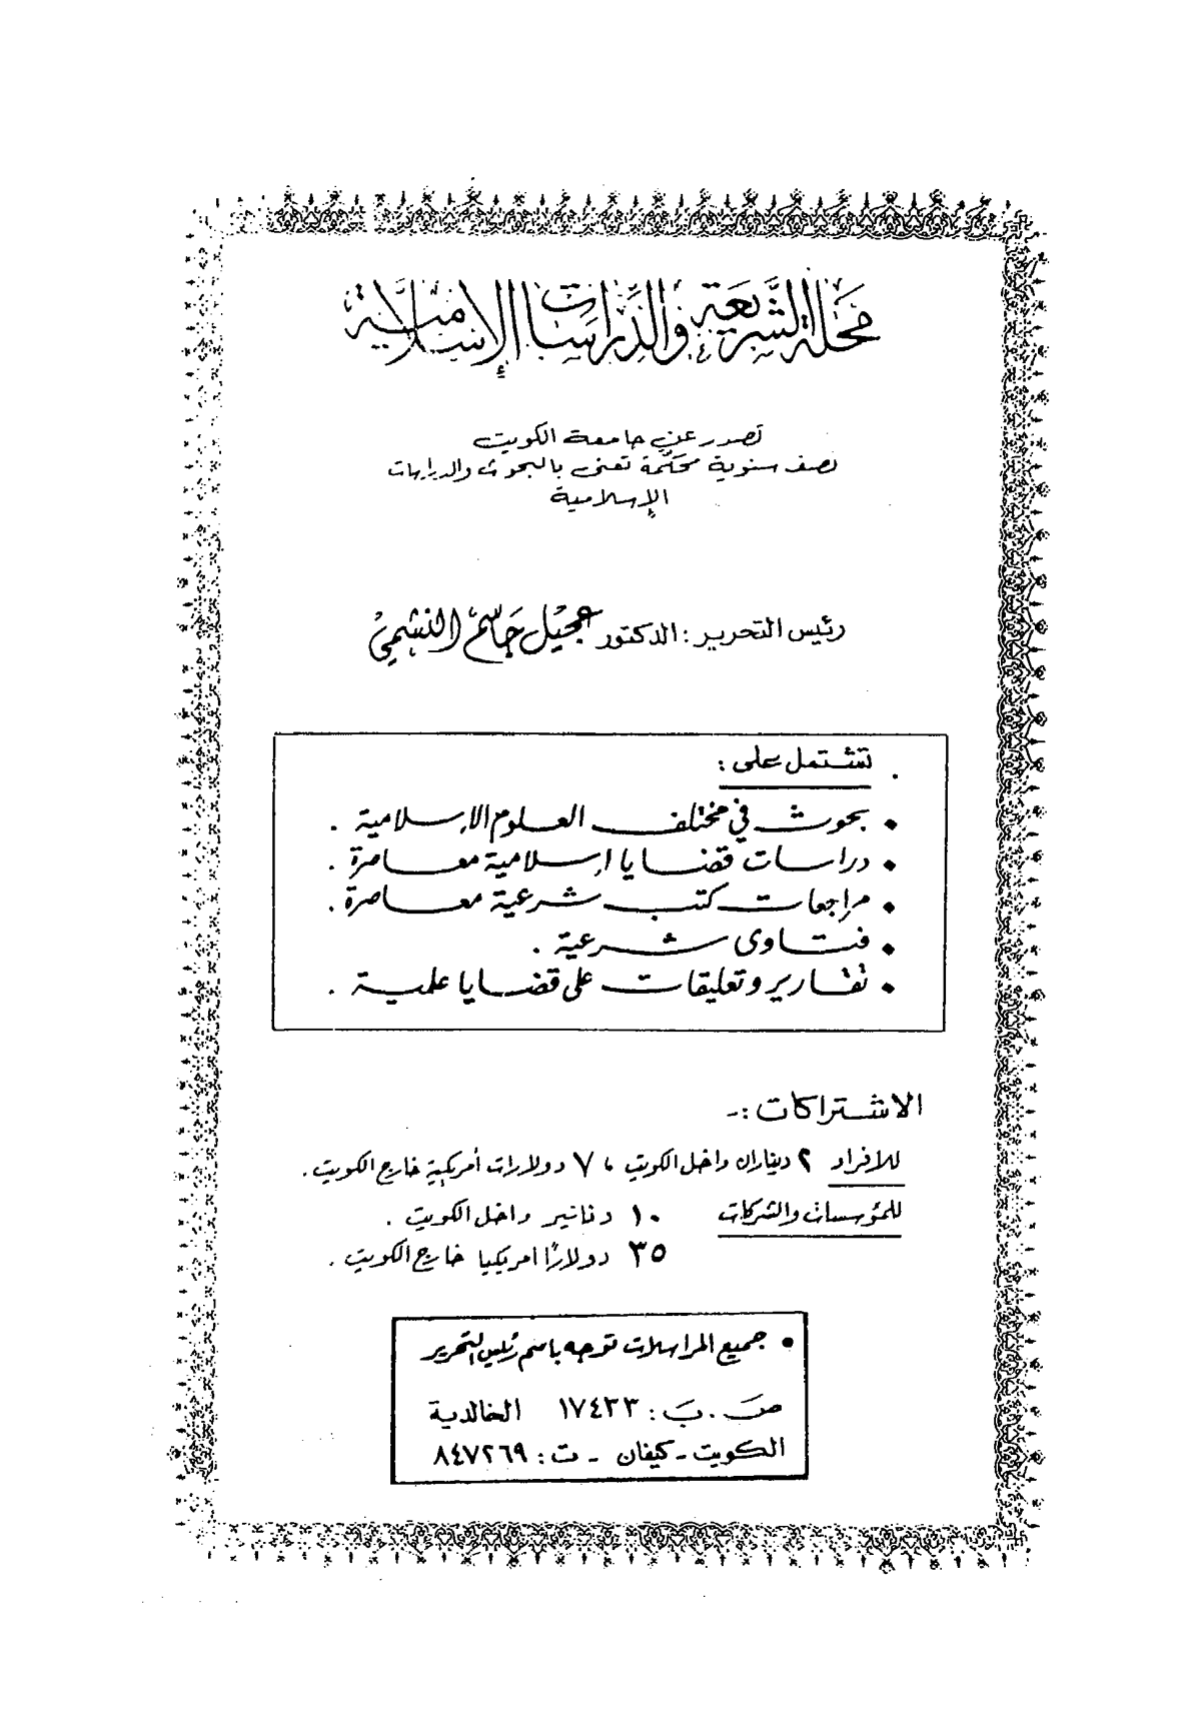 مجلة الشريعة والدراسات الإسلامية
تصدر عن جامعة الكويت
نصف سنوية محكّمة تعنى بالبحوث والدراسات
الإسلامية
رئيس التحرير : الدكتور عجيل جاسم النشمي
تشتمل على :
• بحوث في مختلف العلوم الإسلامية .
• دراسات قضايا إسلامية معاصرة .
• مراجعات كتب شرعية معاصرة .
• فتاوى شرعية .
• تقارير وتعليقات على قضايا علمية .
الاشتراكات :-
للافراد ٢ ديناران داخل الكويت ، ٧ دولارات أمريكية خارج الكويت .
للمؤسسات والشركات ١٠ دنانير داخل الكويت .
٣٥ دولارًا امريكيا خارج الكويت .
• جميع المراسلات توجه باسم رئيس التحرير
ص . ب : ١٧٤٣٣ الخالدية
الكويت - كيفان - ت : ٨٤٧٢٦٩